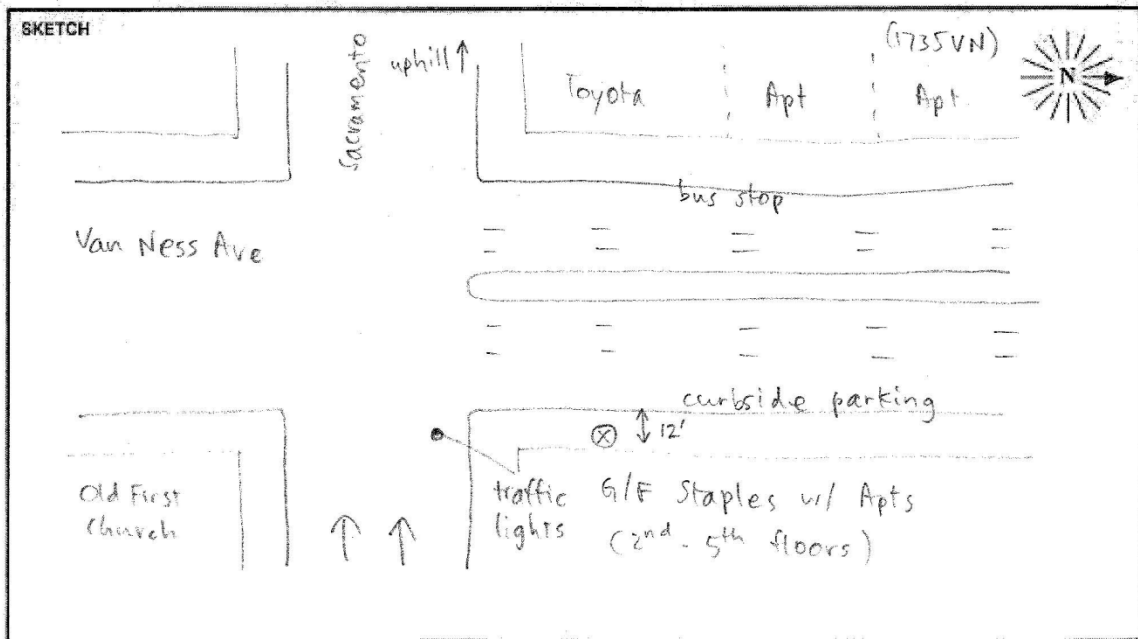 SKETCH
Sacramento
uphill
(1735VN)
Toyota
Apt
Apt.
N
bus stop
Van Ness Ave
curbside parking
12'
Old First
Church
traffic
lights
G/F Staples w/ Apts
(2nd - 5th floors)